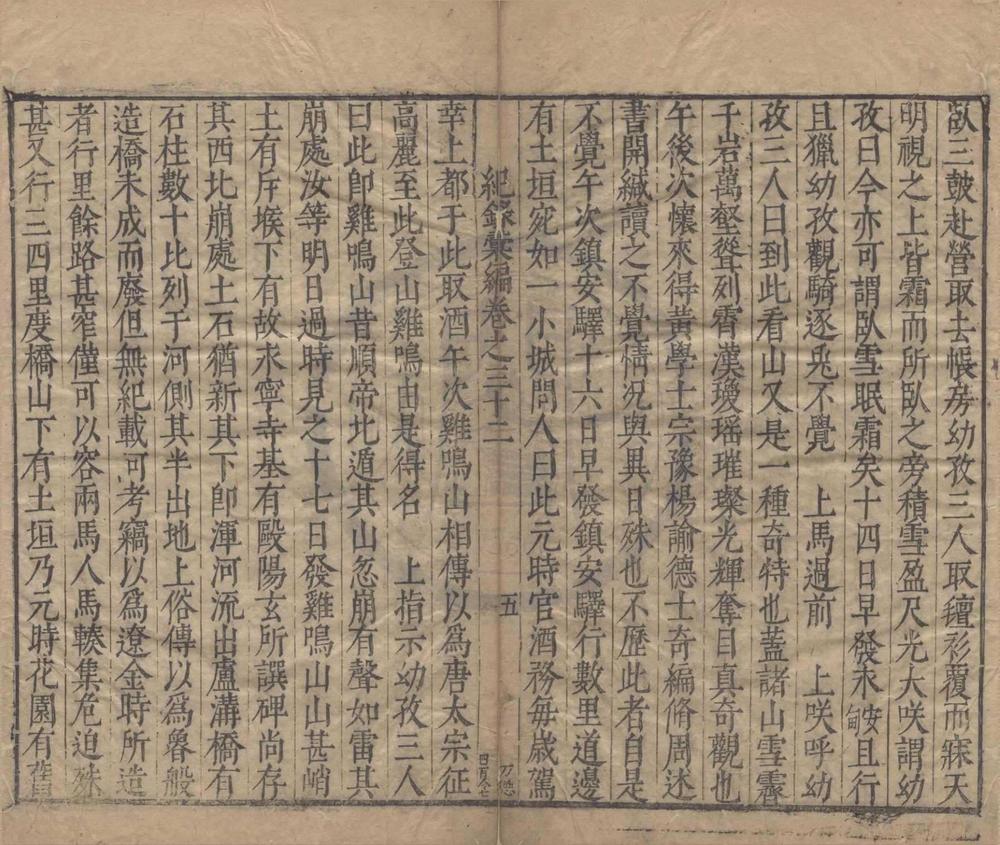 臥三鼓赴營取去帳房幼孜三人取氊衫覆而寐天
明視之上皆霜而所臥之旁積雪盈尺光大咲謂幼
孜曰今亦可謂臥雪眠霜矣十四日早發永安甸且行
且獵幼孜觀騎逐兎不覺　上馬過前　上咲呼幼
孜三人曰到此看山又是一種奇特也蓋諸山雪霽
千岩萬壑聳列霄漢瓊瑶璀璨光輝奪目真奇觀也
午後次懷來得黃學士宗豫楊諭德士奇編脩周述
書開緘讀之不覺情况與異日殊也不歷此者自是
不覺午次鎮安驛十六日早發鎮安驛行數里道邊
有土垣宛如一小城問人曰此元時官酒務每歲駕
紀錄彙編卷之三十二　五
幸上都于此取酒午次雞鳴山相傳以爲唐太宗征
高麗至此登山雞鳴由是得名　上指示幼孜三人
曰此卽雞鳴山昔順帝北遁其山忽崩有聲如雷其
崩處汝等明日過時見之十七日發雞鳴山山甚峭
土有斥堠下有故永寧寺基有歐陽玄所譔碑尚存
其西北崩處土石猶新其下卽渾河流出盧溝橋有
石柱數十比列于河側其半出地上俗傳以爲魯般
造橋未成而廢但無紀載可考竊以爲遼金時所造
者行里餘路甚窄僅可以容兩馬人馬輳集危迫殊
甚又行三四里度橋山下有土垣乃元時花園有舊